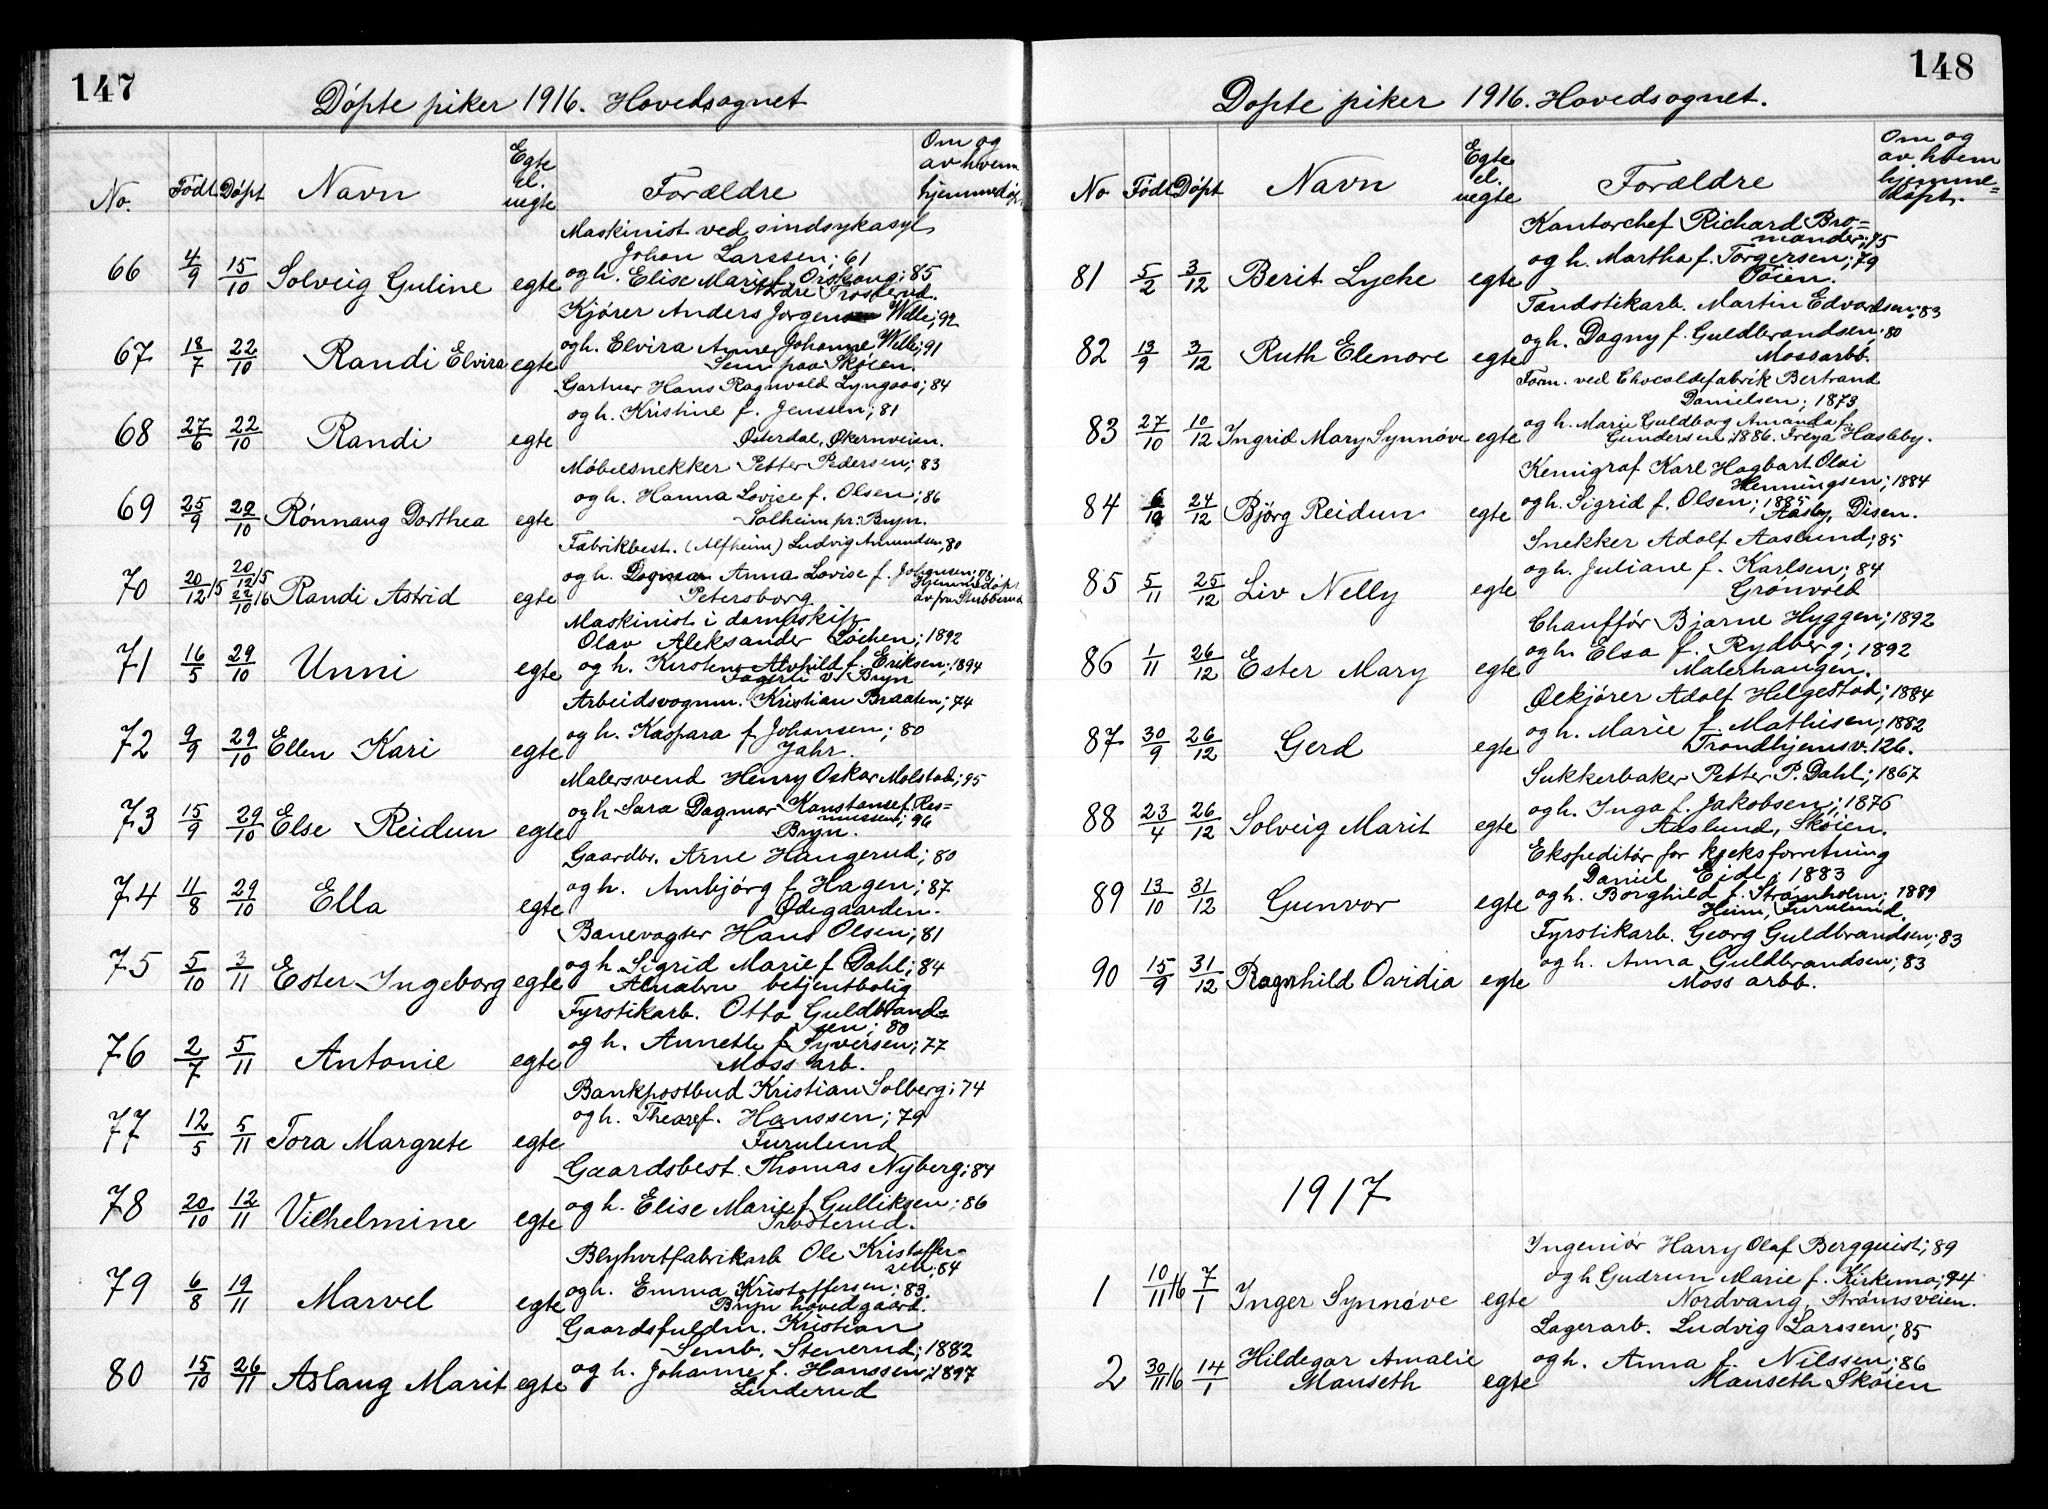 147
Döpte piker 1916. Hovedsognet
No. Född Döpt Navn Egte el. uegte Forældre Om og av hvem hjemmedöpt
Maskinist ved sindsykasyl
Johan Larssen; 61
66 4/9 15/10 Solveig Guline egte og h. Elise Marie f. Orskaug; 85
Nordre Trosterud.
Kjörer Anders Jorgen Wille; 92
67 18/7 22/10 Randi Elvira egte og h. Elvira Anne Johanne Wille; 91
Sem paa Sköien.
Gartner Hans Ragnvald Lyngaas; 84
og h. Kristine f. Jenssen; 81
68 27/6 22/10 Randi egte Österdal, Økernveien.
Möbelsnekker Petter Pedersen; 83
og h. Hanna Lovise f. Olsen; 86
69 25/9 22/10 Rönnaug Dorthea egte Solheim pr. Bryn.
Fabrikbest. (Alfheim) Ludvig Amundsen, 80
70 20/12 15 20/12 15 22/10 16 Randi Astrid egte og h. Dagmar Anna Lovise f. Johansen; 78 Hjemmedöpt
Petersborg av fru Stubberud
Maskinist i dampskib
Olav Aleksander Löchen; 1892
71 16/5 29/10 Unni egte og h. Kirsten Alvhild f. Eriksen; 1894
Fagerli v/ Bryn
Arbeidsvognm. Kristian Braaten; 74
72 9/9 29/10 Ellen Kari egte og h. Kaspara f Johansen; 80
Jahr.
Malersvend Henry Oskar Molstad; 95
73 15/9 29/10 Else Reidun egte og h Sara Dagmar Konstanse f. Ras=
mussen; 96
Bryn.
Gaardbr. Arne Haugerud; 80
74 11/8 29/10 Ella egte og h. Ambjörg f Hagen; 87
Ødegaarden.
Banevogter Hans Olsen; 81
75 5/10 3/11 Ester Ingeborg egte og h Sigrid Marie f Dahl; 84
Alnabru betjentbolig
Fyrstikarb. Otto Guldbrand=
sen; 80
76 2/7 5/11 Antonie egte og h. Annette f Syversen; 77
Moss arb.
Bankpostbud Kristian Solberg; 74
77 12/5 5/11 Tora Margrete egte og h. Thea f. Hanssen; 79
Furulund
Gaardsbest. Thomas Nyberg; 84
78 20/10 12/11 Vilhelmine egte og h. Elise Marie f Gulliksen; 86
Trosterud.
Blyhvitfabrikarb Ole Kristoffer-
sen; 84
79 6/8 19/11 Marvel egte og h. Emma Kristoffersen; 83.
Bryn hovedgaard.
Gaardsfuldm. Kristian
Semb. Stenerud; 1882
80 15/10 26/11 Aslaug Marit egte og h. Johanne f. Hanssen; 1897
Linderud
148
Döpte piker 1916. Hovedsognet.
No Född Döpt Navn Egte el. uegte Forældre Om og av hvem hjemme=döpt.
Kontorchef Richard Bro=
mander; 75
81 5/2 3/12 Berit Lyche egte og h. Martha f. Torgersen; 79
Töien.
Tandstikarb. Martin Edvardsen; 83
82 13/9 3/12 Ruth Elenore egte og h. Dagny f. Guldbrandsen; 80
Mossarbb.
Form. ved Chocoldefabrik Bertrand
Danielsen; 1873
83 27/10 10/12 Ingrid Mary Synnöve egte og h. Marie Guldborg Amanda f.
Gundersen; 1886. Freya Hasleby.
Kemigraf Karl Hagbart Olai
Henningsen; 1884
84 6/10 24/12 Björg Reidun egte og h. Sigrid f. Olsen; 1885
Aasly, Disen.
Snekker Adolf Aaslund; 85
85 5/11 25/12 Liv Nelly egte og h. Juliane f. Karlsen; 84
Grönvold
Chaufför Bjarne Hyggen; 1892
86 1/11 26/12 Ester Mary egte og h. Elsa f. Rydberg; 1892
Malerhaugen.
Oekjörer Adolf Helgestad; 1884
87 30/9 26/12 Gerd egte og h. Marie f. Mathisen; 1882
Trondhjemsv. 126.
Sukkerbaker Petter P. Dahl; 1867
88 23/4 26/12 Solveig Marit egte og h. Inga f. Jakobsen; 1876
Aaslund, Sköien.
Ekspeditör for kjeksforretning
Daniel Eide; 1883
89 13/10 31/12 Gunvor egte og h. Borghild f. Strömholm; 1889
Heim, Furulund.
Fyrstikarb. Georg Guldbrandsen; 83
90 15/9 31/12 Ragnhild Ovidia egte og h. Anna Guldbrandsen; 83
Moss arbb.
1917
Ingeniör Harry Olaf Bergquist; 89
1 10/11 16 7/1 Inger Synnöve egte og h Gudrun Marie f. Kirkemo; 94
Nordvang Strömsveien.
Lagerarb. Ludvig Larssen; 85
2 30/11 16 14/1 Hildegar Amalie egte og h. Anna f. Nilssen; 86
Manseth Manseth Sköien